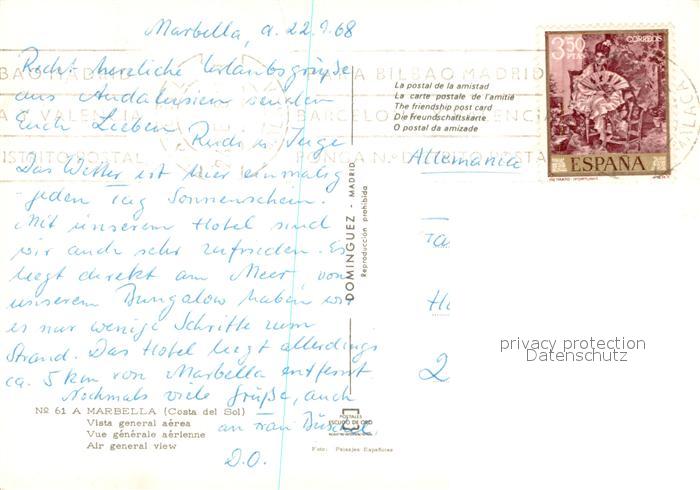 Marbella, d. 22.9.68
Recht herzliche Urlaubsgrüße
aus Andalusien senden
Euch Lieben Rudi u. Inge
Das Wetter ist hier einmalig
jeden Tag Sonnenschein.
Mit unserem Hotel sind
wir auch sehr zufrieden. Es
liegt direkt am Meer, von
unserem Bungalow haben wir
es nur wenige Schritte zum
Strand. Das Hotel liegt allerdings
ca. 5 km von Marbella entfernt.
Nochmals viele Grüße, auch
an Frau
D.O.
Nº 61 A MARBELLA (Costa del Sol)
Vista general aérea
Vue générale aérienne
Air general view
DOMINGUEZ - MADRID
Reproducción prohibida
POSTALES
ESCUDO DE ORO
Foto: Paisajes Españoles
La postal de la amistad
La carte postale de l'amitié
The friendship post card
Die Freundschaftskarte
O postal da amizade
BILBAO MADRID
VALENCIA
DISTRITO POSTAL
A BILBAO MADRID
BARCELO
PONGA Nº DISTRITO POSTAL
3,50
PTAS
CORREOS
ESPAÑA
Allemania
Ta
Ha
2
privacy protection
Datenschutz